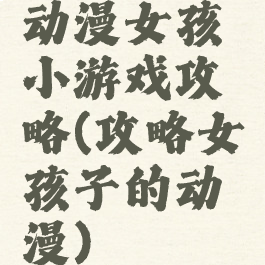 动漫女孩
小游戏攻
略(攻略女
孩子的动
漫)